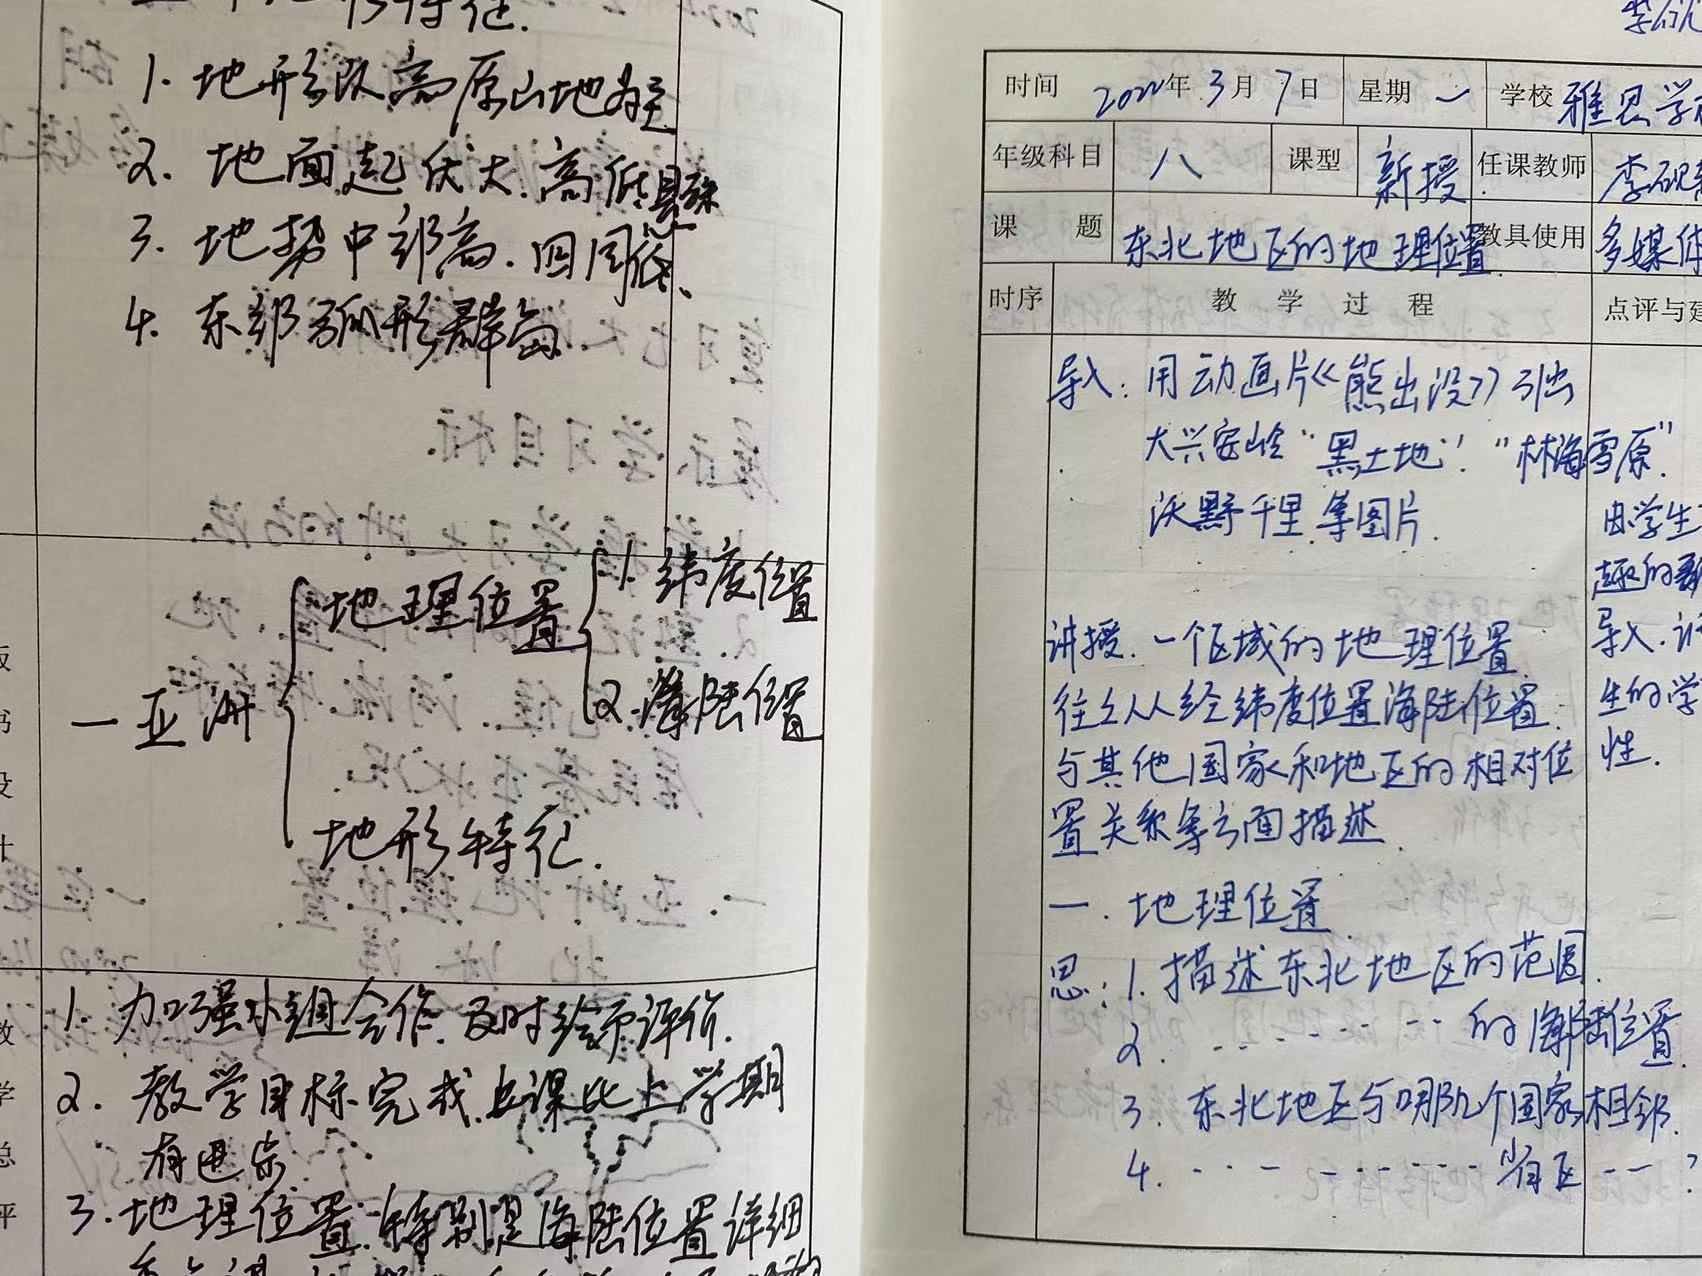 1. 地形以高原山地为主
2. 地面起伏大.高低悬殊
3. 地势中部高.四周低、
4. 东部弧形群岛
一 亚洲
地理位置
1. 纬度位置
2. 海陆位置
地形特征.
1. 加强小组合作.及时给予评价.
2. 教学目标完成上课比上学期
有进步
3. 地理位置.特别是海陆位置详细
板
书
设
计
教
学
总
评
时间 2022年 3月 7日 星期 一 学校 雅思学
年级科目 八 课型 新授 任课教师 李砚
课 题 东北地区的地理位置 教具使用 多媒体
时序 教 学 过 程 点评与建
导入: 用动画片《熊出没》引出
大兴安岭“黑土地”.“林海雪原”
沃野千里等图片.
讲授. 一个区域的地理位置
往往从经纬度位置海陆位置
与其他国家和地区的相对位
置关系等方面描述.
一. 地理位置
思: 1. 描述东北地区的范围.
2. ------- 的海陆位置
3. 东北地区与哪几个国家相邻.
4. -------- 省区 -- ?
由学生
趣的
导入.
生的学
性.